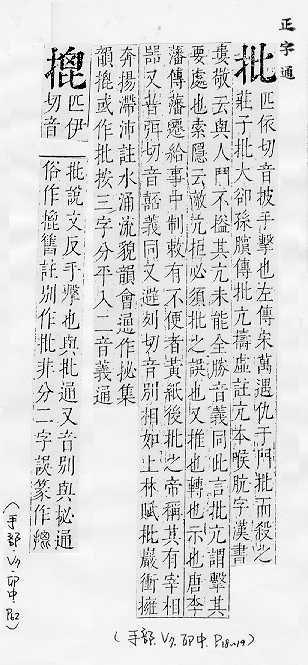 正字通
批
匹依切音披手擊也左傳宋萬遇仇于門批而殺之
莊子批大卻孫臏傳批亢擣虛註亢本喉肮字漢書
婁敬云與人鬥不搤其亢未能全勝音義同此言批亢謂擊其
要處也索隱云敵亢拒必須批之誤也又推也轉也示也唐李
藩傳藩遷給事中制敕有不便者黃紙後批之帝稱其有宰相
噐又普弭切音嚭義同又避列切音別相如上林賦批巖衝擁
奔揚滯沛註水涌流貌韻會通作㧙集
韻㨢或作批按三字分平入二音義通
(手部.V7.卯中.P18~19)
㨢
匹伊
切音
批說文反手擊也與批通又音別與㧙通
俗作㨢舊註別作批非分二字誤篆作
(手部.V7.卯中 P62)